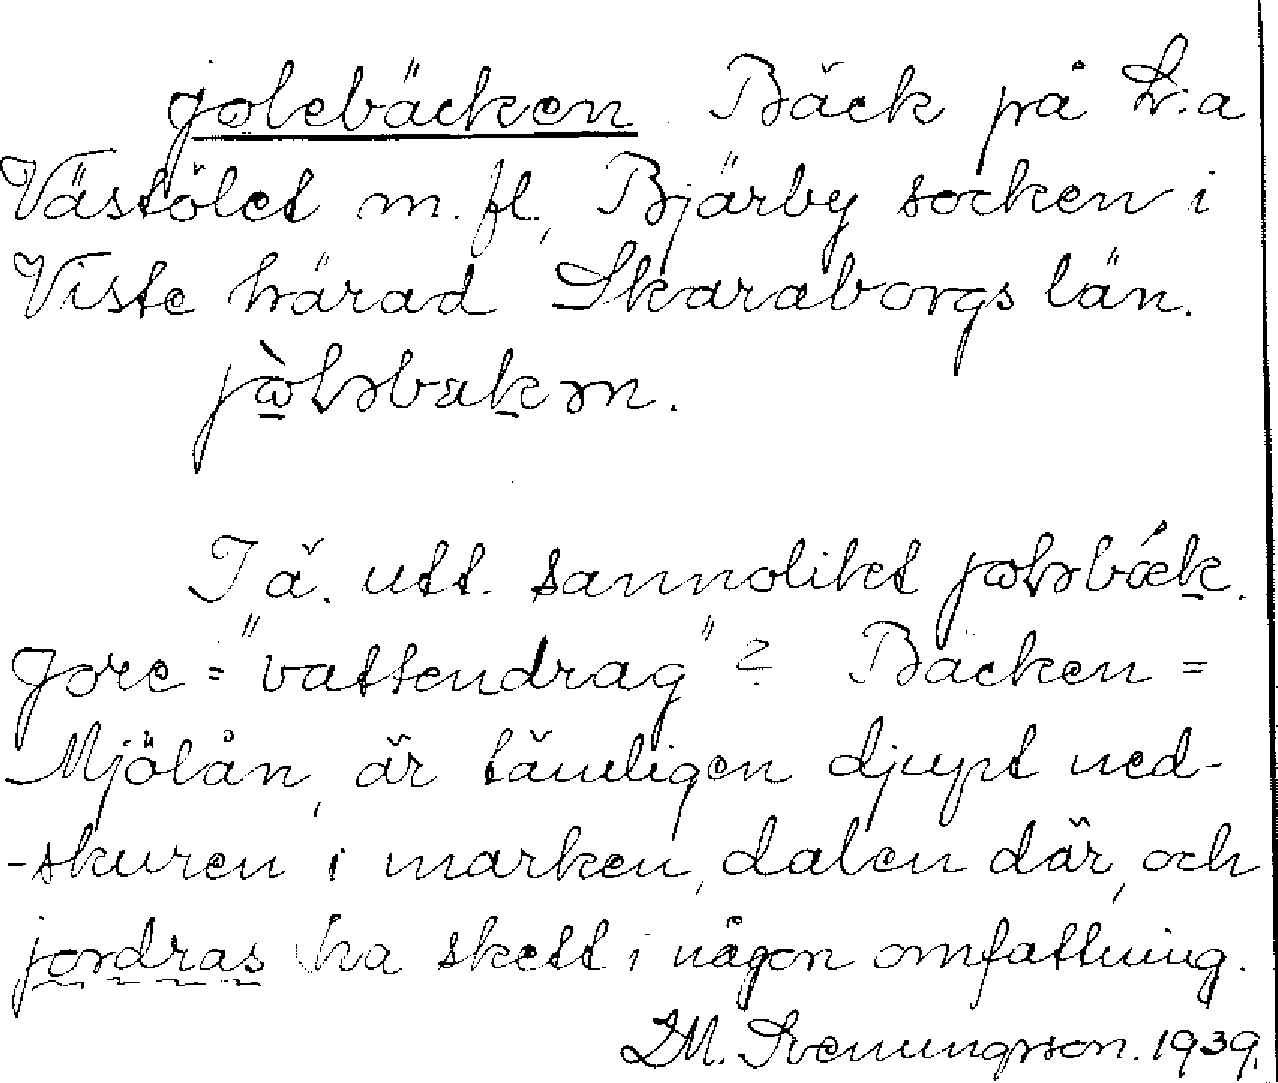 golebäcken Bäck på L:a
Västölet m. fl., Bjärby socken i
Viste härad Skaraborgs län.
jòlǝbækǝn.
I ä. utt. sannolikt
Gore = "vattendrag"? Bäcken =
Mjölån, är tämligen djupt ned-
-skuren i marken, dalen där, och
jordras ha skett i någon omfattning.
Svenungsson. 1939.